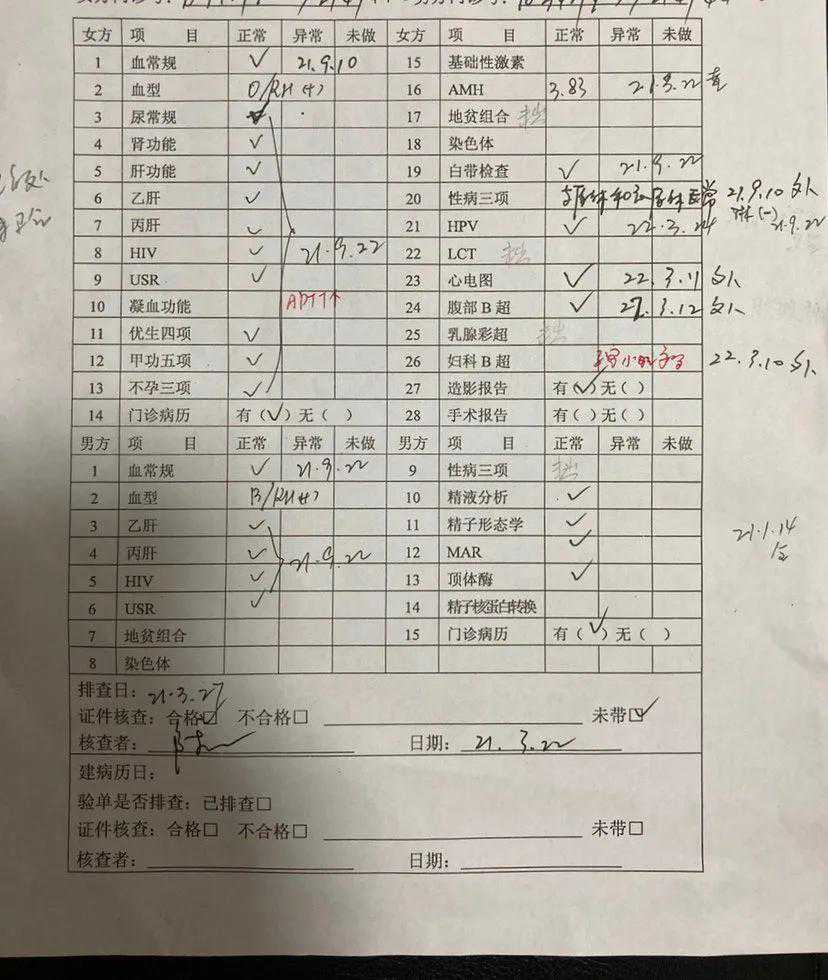 女方 项 目 正常 异常 未做 女方 项 目 正常 异常 未做
1 血常规 ✓ 21.9.10 15 基础性激素
2 血型 O/RH(+) 16 AMH 3.83 21.9.22
3 尿常规 ✓ 17 地贫组合
4 肾功能 ✓ 18 染色体
5 肝功能 ✓ 19 白带检查 ✓ 21.9.22
6 乙肝 ✓ 20 性病三项 21.9.10
7 丙肝 ✓ 21 HPV ✓ 22.3.14 淋(-) 21.9.22
8 HIV ✓ 21.9.22 22 LCT
9 USR ✓ 23 心电图 ✓ 22.3.11
10 凝血功能 APTT↑ 24 腹部B超 ✓ 22.3.12
11 优生四项 ✓ 25 乳腺彩超
12 甲功五项 ✓ 26 妇科B超 22.3.10
13 不孕三项 ✓ 27 造影报告 有(✓)无( )
14 门诊病历 有(✓)无( ) 28 手术报告 有( )无( )
男方 项 目 正常 异常 未做 男方 项 目 正常 异常 未做
1 血常规 ✓ 21.9.22 9 性病三项
2 血型 B/RH(+) 10 精液分析 ✓
3 乙肝 ✓ 11 精子形态学 ✓ 21.1.14
4 丙肝 ✓ 21.9.22 12 MAR ✓
5 HIV ✓ 13 顶体酶 ✓
6 USR ✓ 14 精子核蛋白转换
7 地贫组合 15 门诊病历 有(✓)无( )
8 染色体
排查日:21.3.27
证件核查:合格☑ 不合格□ 未带☑
核查者: 日期:21.3.22
建病历日:
验单是否排查:已排查□
证件核查:合格□ 不合格□ 未带□
核查者: 日期: